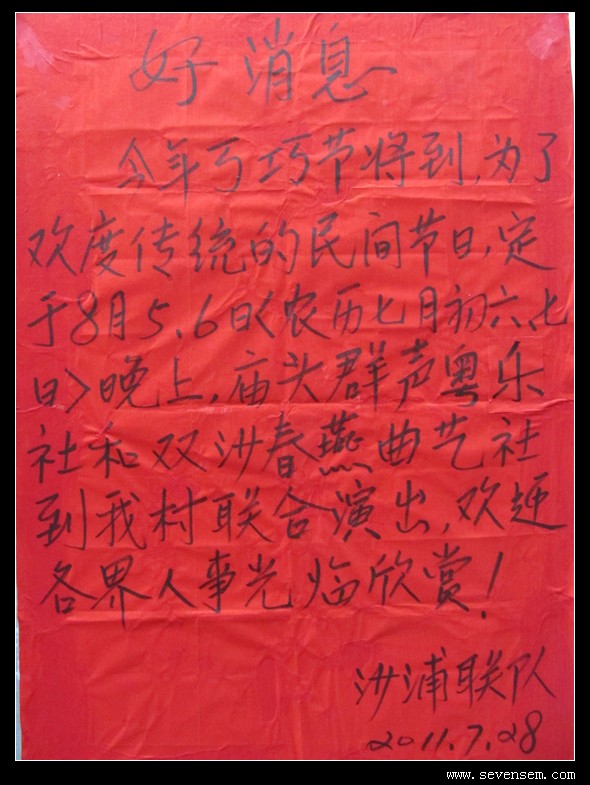 好消息
今年丂巧节将到,为了
欢度传统的民间节日,定
于8月5、6日<农历七月初六、七
日>晚上,庙头群声粤乐
社和双沙春燕曲艺社
到我村联合演出,欢迎
各界人事光临欣赏!
沙浦联队
2011.7.28
www.sevensem.com